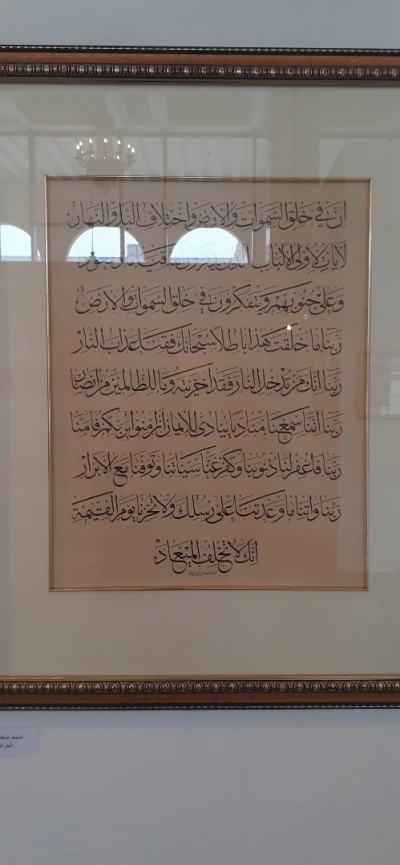 ان في خلق السموات والارض واختلاف اليل والنهار
لايات لاولى الالباب الذين يذكرون الله قيما وقعود
وعلى جنوبهم ويتفكرون في خلق السموات والارض
ربنا ما خلقت هذا باطلا سبحانك فقنا عذاب النار
ربنا انك من تدخل النار فقد اخزيته وما للظالمين من انصار
ربنا اننا سمعنا مناديا ينادى للايمن ان امنوا بربكم فامنا
ربنا فاغفر لنا ذنوبنا وكفر عنا سياتنا وتوفنا مع الابرار
ربنا واتنا ما وعدتنا على رسلك ولا تخزنا يوم القيمة
انك لا تخلف الميعاد